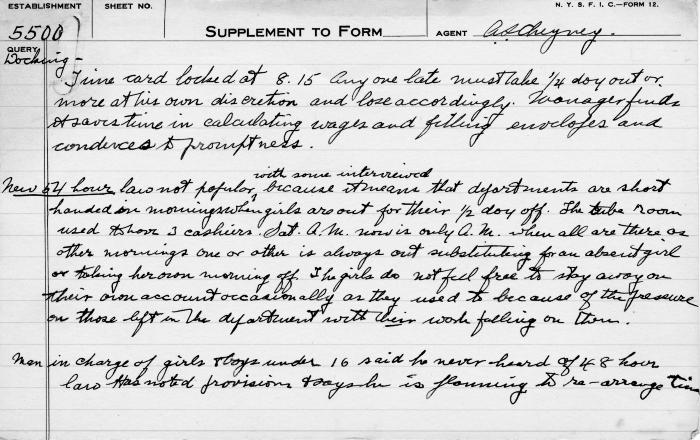 ESTABLISHMENT SHEET NO. N. Y. S. F. I. C.—FORM 12.
5500 SUPPLEMENT TO FORM AGENT A S Cheyney.
QUERY
Docking -
Time card locked at 8.15 Any one late must take 1/4 day out or
more at his own discretion and lose accordingly. Manager finds
it saves time in calculating wages and filling envelopes and
conduces to promptness.
with some interviewed
New 54 hour law not popular, because it means that departments are short
handed in mornings when girls are out for their 1/2 day off. The tube room
used to have 3 cashiers. Sat. A.M. now is only A.M. when all are there as
other mornings one or other is always out substituting for an absent girl
or taking her own morning off. The girls do not feel free to stay away on
their own account occasionally as they used to because of the pressure
on those left in the department with their work falling on them.
Man in charge of girls & boys under 16 said he never heard of 48 hour
law Has noted provisions & says he is planning to re-arrange time